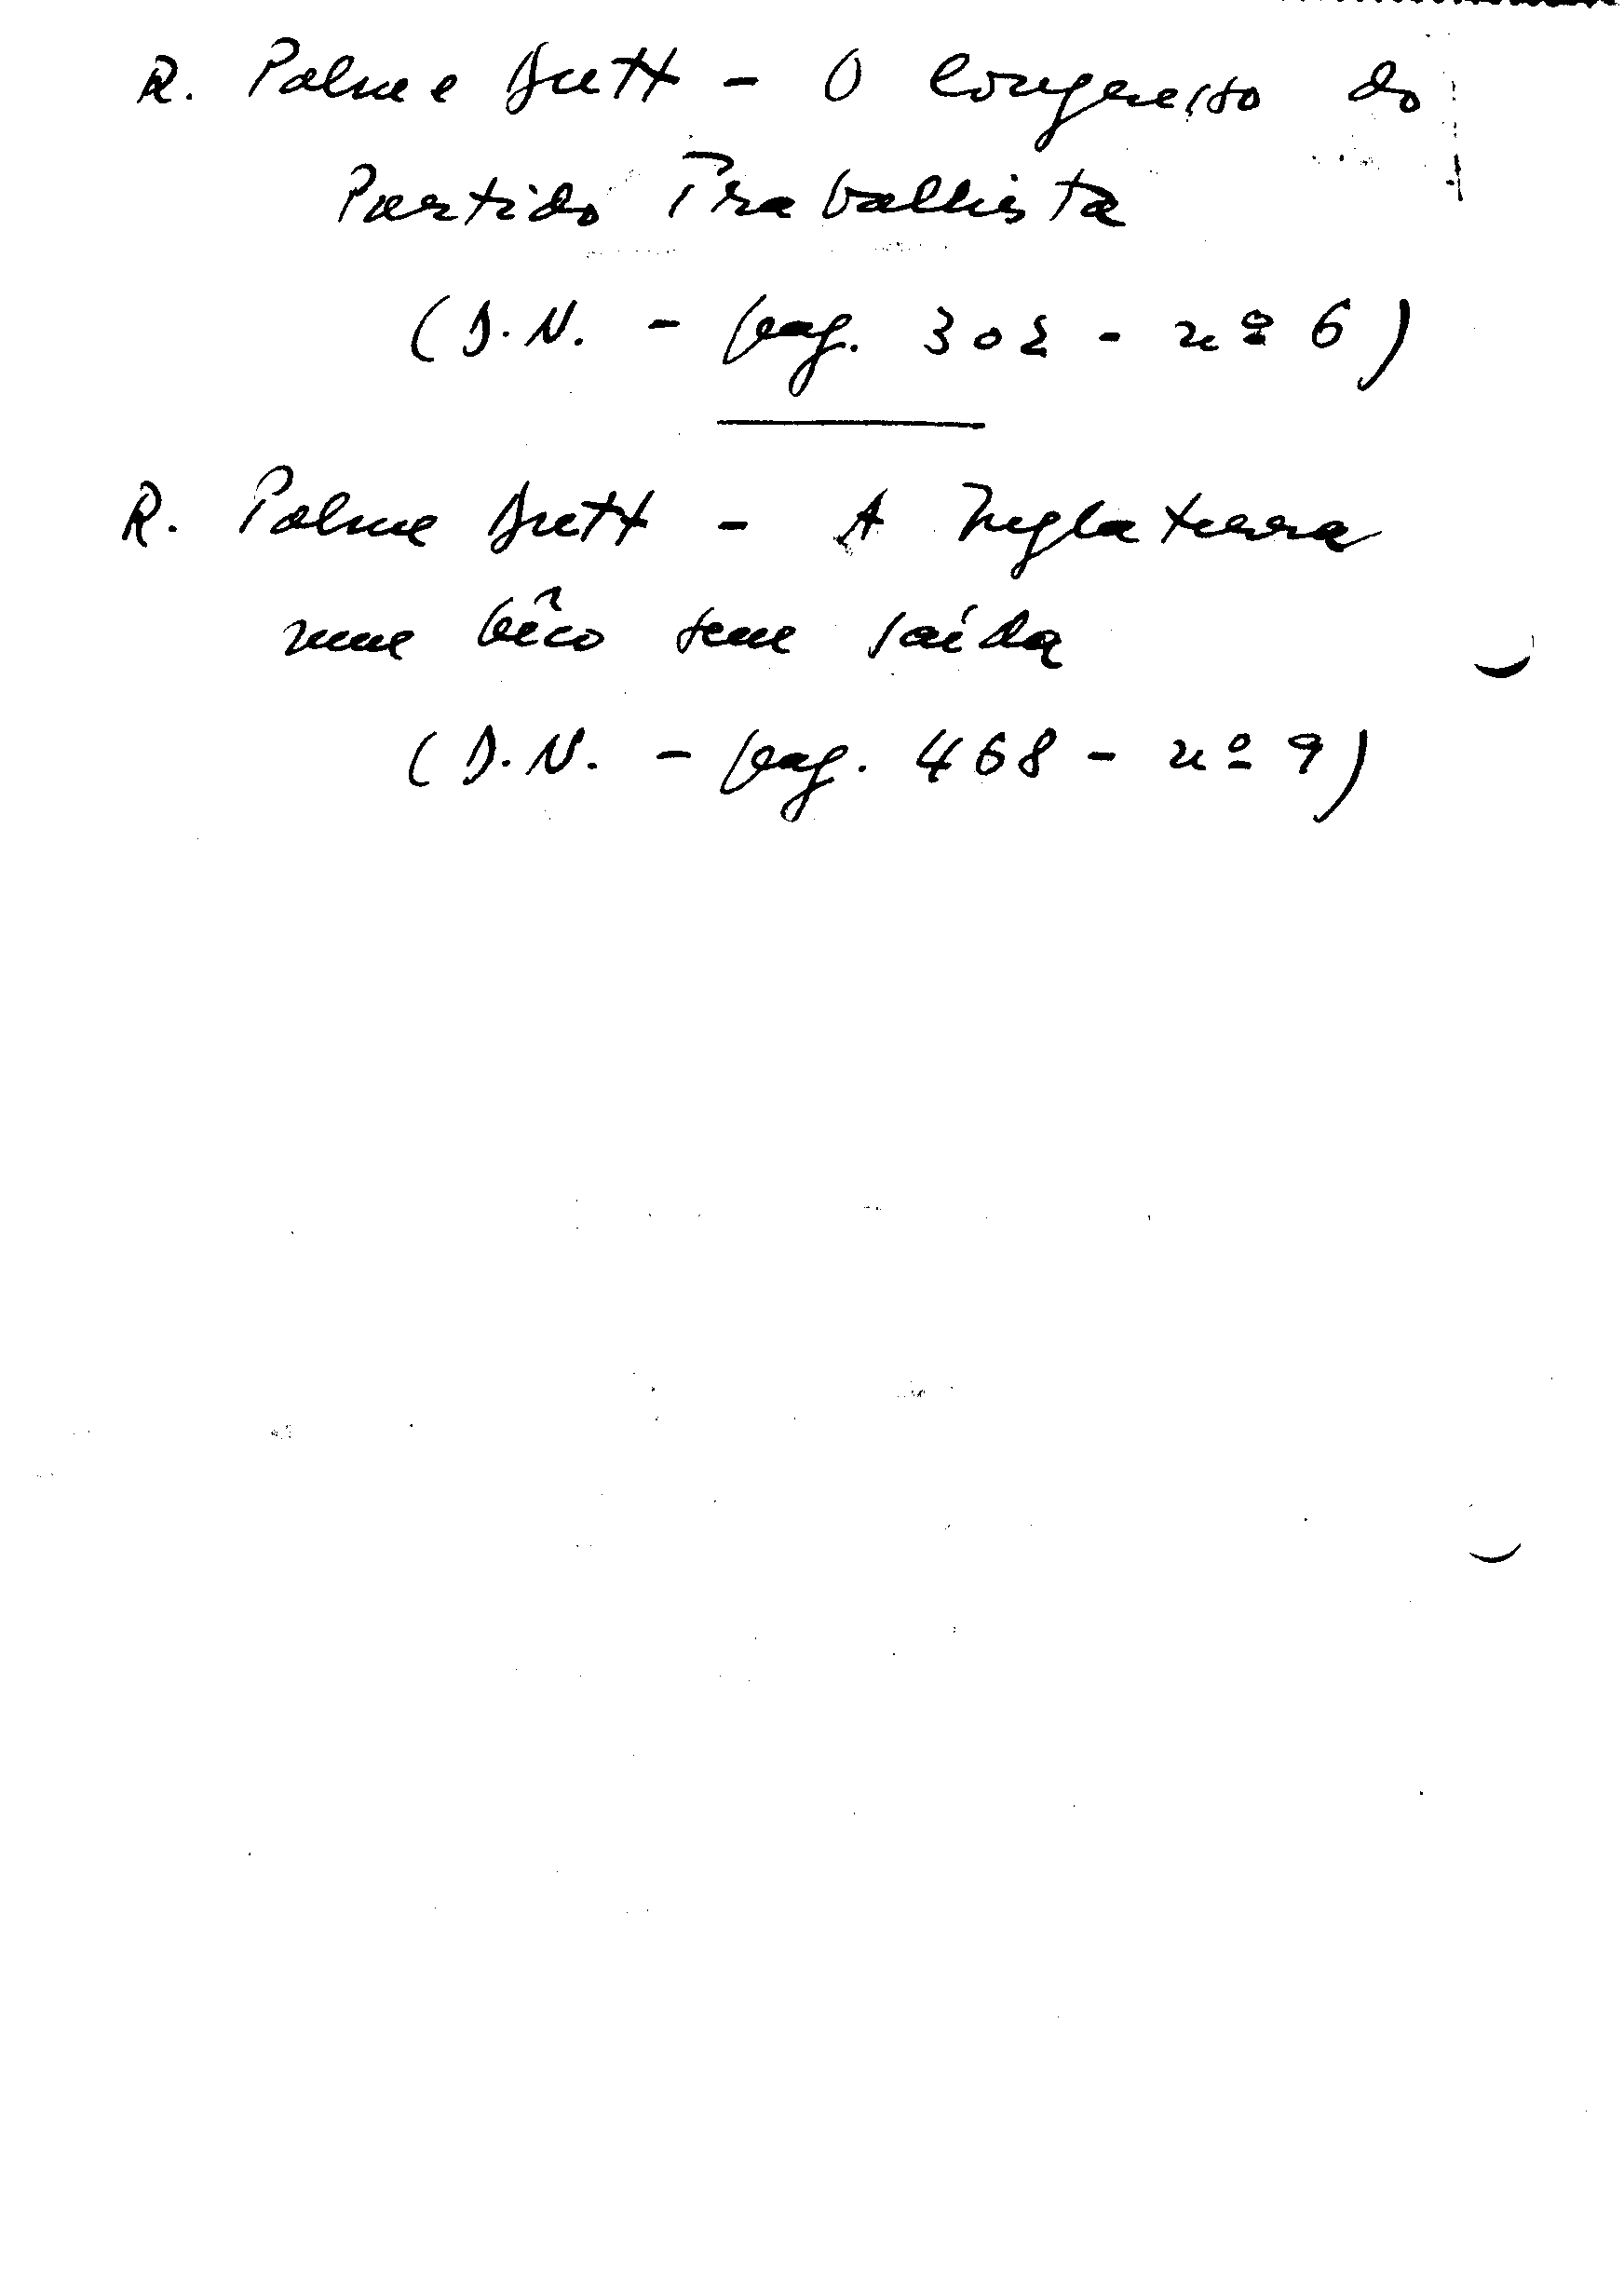 R. Palme Dutt - O Congresso do
Partido Trabalhista
(D.N. - pag. 302 - nº 6)
R. Palme Dutt - A Inglaterra
num bêco sem saída
(D.N. - pag. 468 - nº 9)